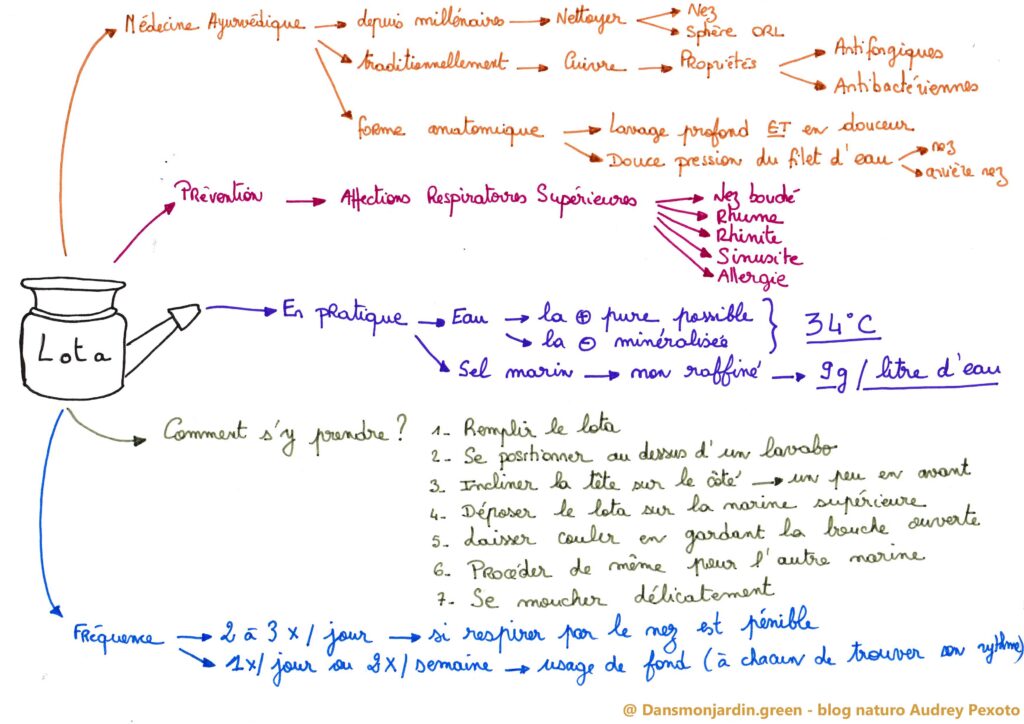 Médecine Ayurvédique → depuis millénaires → Nettoyer → Nez
→ Sphère ORL
→ traditionnellement → Cuivre → Propriétés → Antifongiques
→ Antibactériennes
→ forme anatomique → Lavage profond ET en douceur
→ Douce pression du filet d'eau → nez
→ arrière nez
Prévention → Affections Respiratoires Supérieures → Nez bouché
→ Rhume
→ Rhinite
→ Sinusite
→ Allergie
Lota
En pratique → Eau → la ⊕ pure possible } 34°C
→ la ⊖ minéralisée
→ Sel marin → non raffiné → 9g / litre d'eau
Comment s'y prendre ?
1- Remplir le lota
2- Se positionner au dessus d'un lavabo
3- Incliner la tête sur le côté → un peu en avant
4- Déposer le lota sur la narine supérieure
5- Laisser couler en gardant la bouche ouverte
6- Procéder de même pour l'autre narine
7- Se moucher délicatement
Fréquence → 2 à 3 x / jour → si respirer par le nez est pénible
→ 1x/ jour ou 2x/ semaine → usage de fond (à chacun de trouver son rythme)
@ Dansmonjardin.green - blog naturo Audrey Pexoto